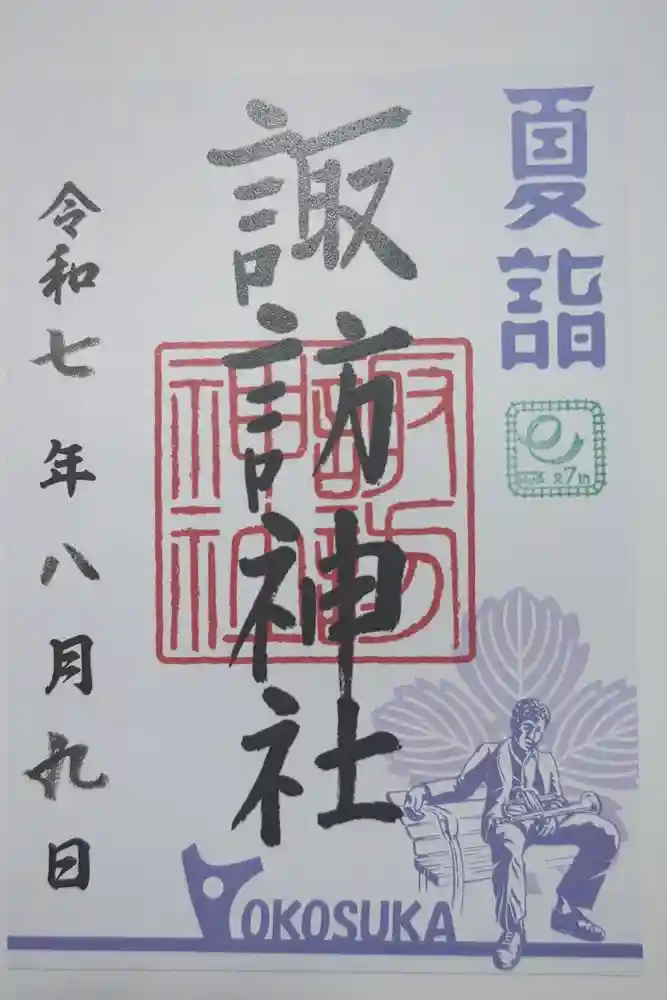 夏詣
諏訪神社
諏訪
神社
令和七年八月九日
YOKOSUKA